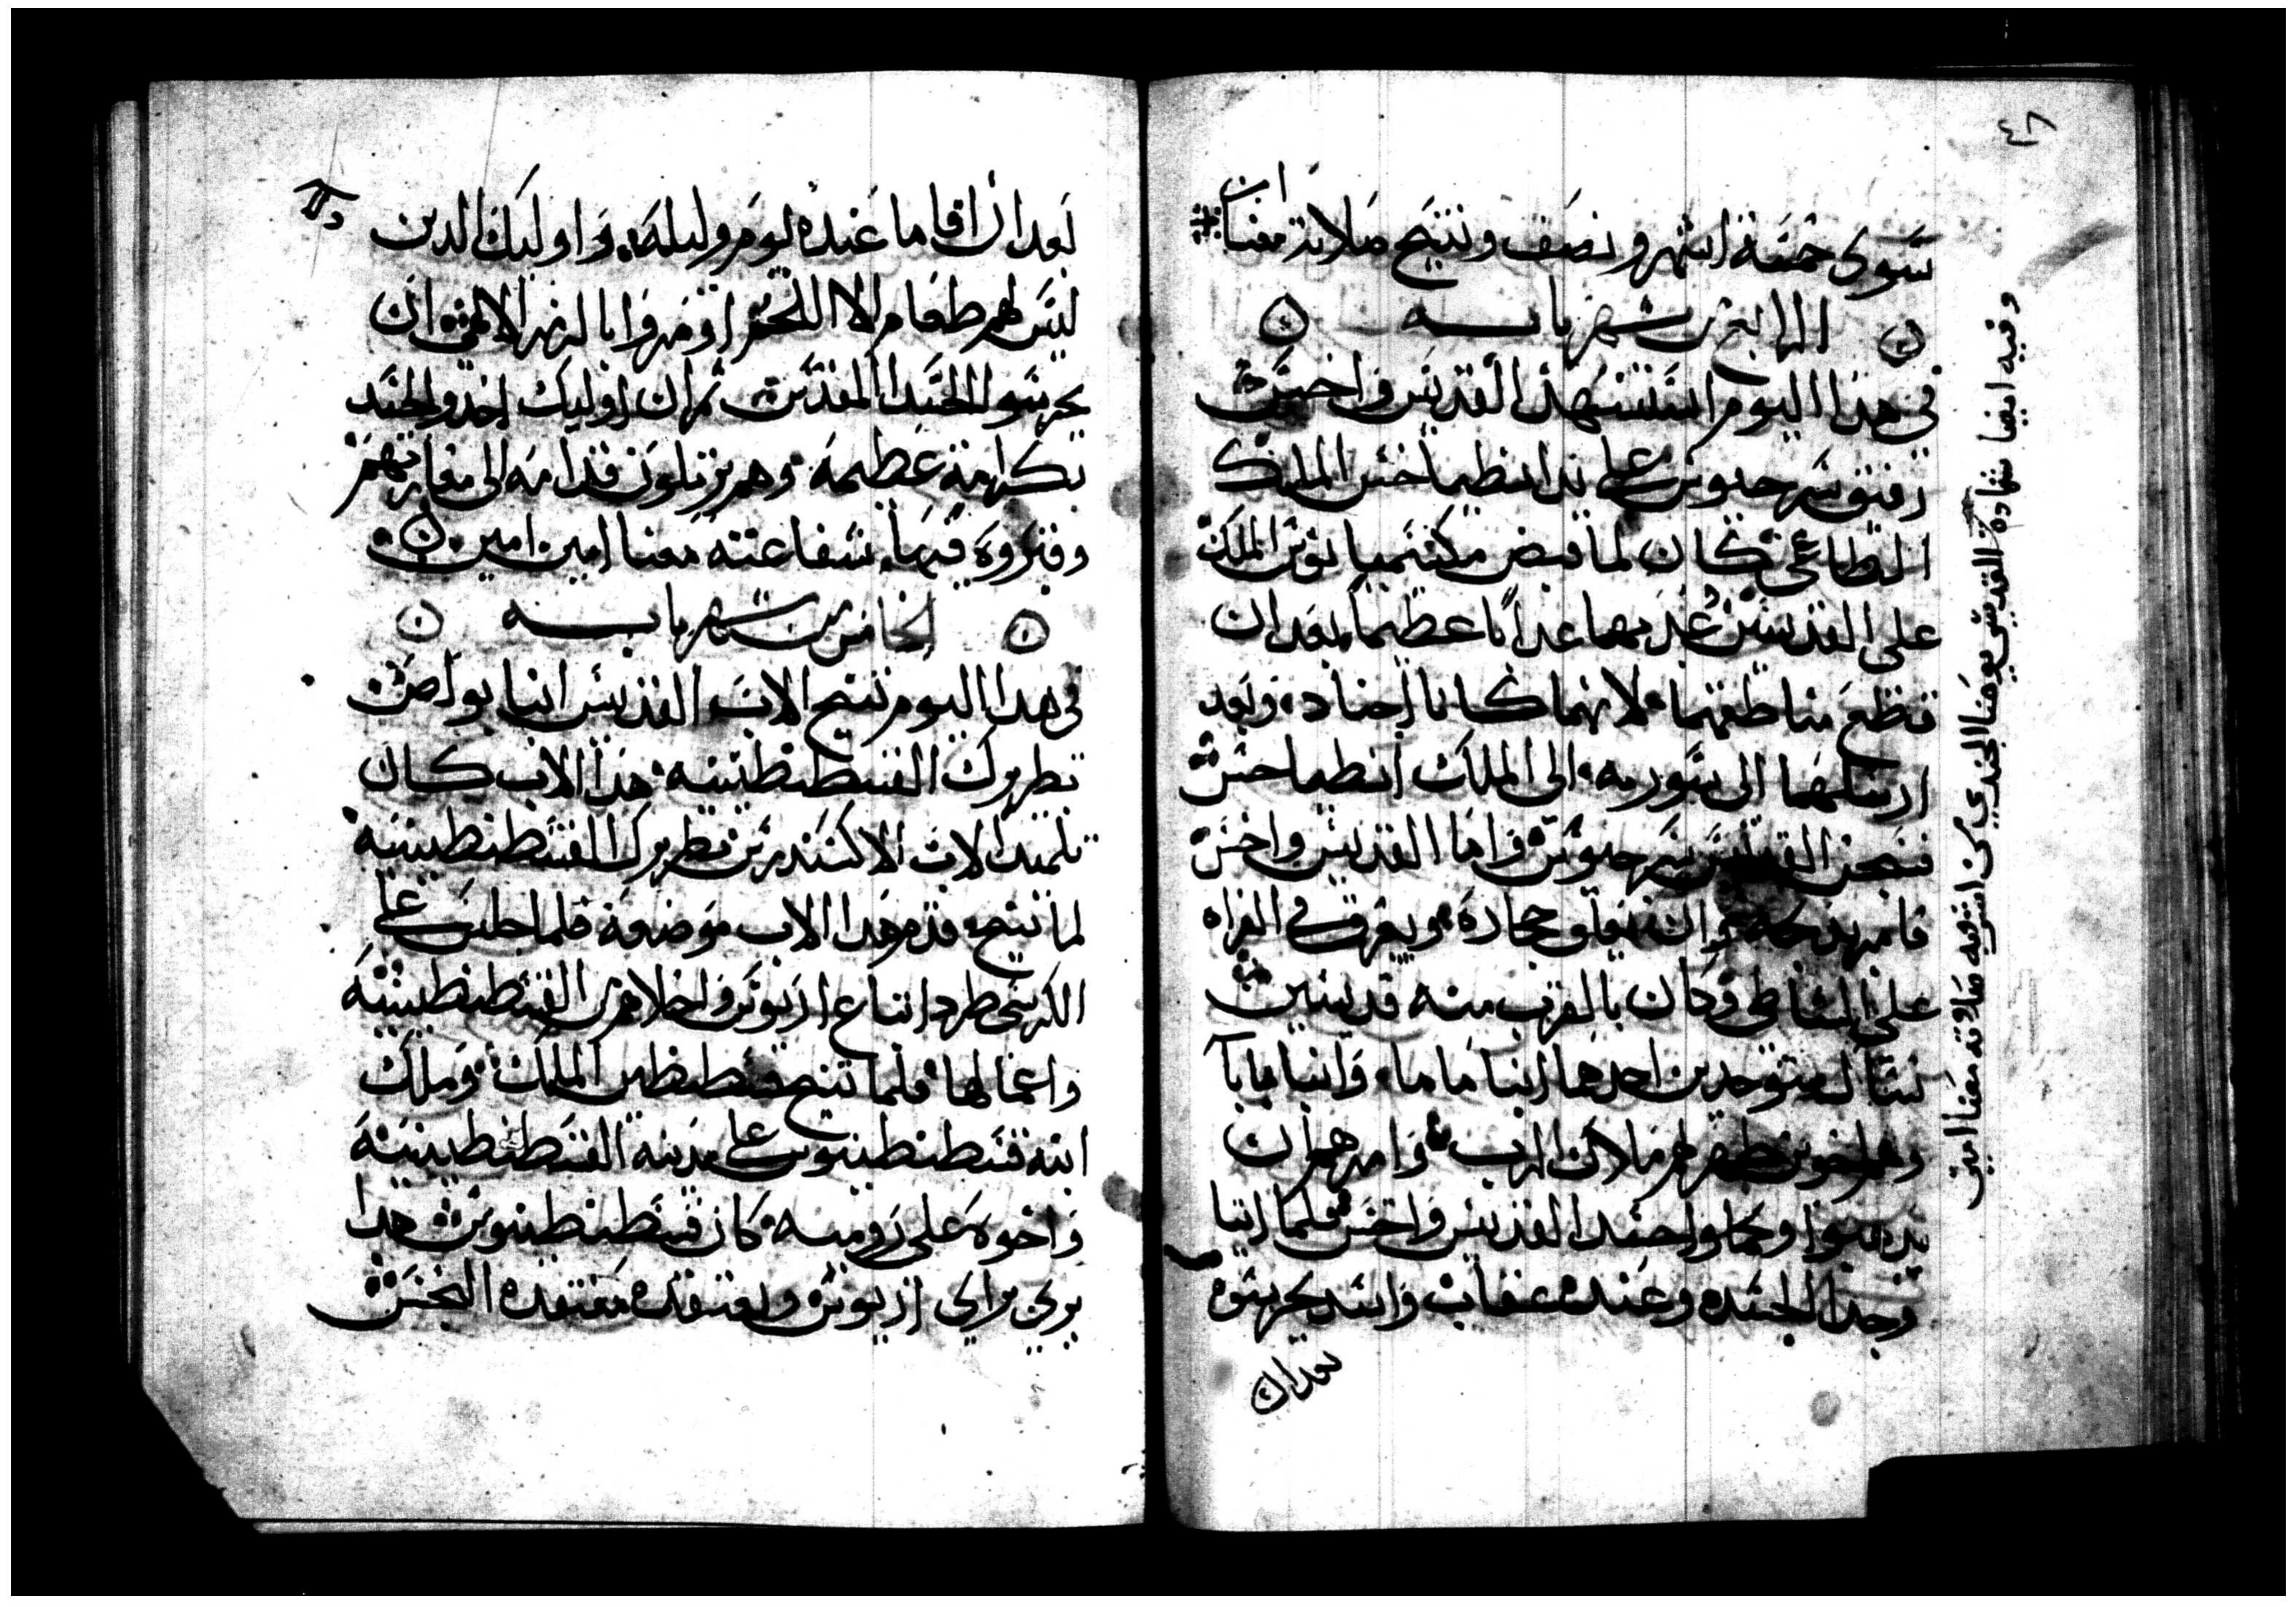 ٤٨
سوى خمسة اشهر ونصف وتنيح صلاته معنا امين
الرابع من شهر بابه
في هذا اليوم استشهد القديس واخس
رفيق سرجيوس على يد انطياخس الملك
الطاغي وكان لما قبض مكسيميانوس الملك
على القديسين عذبهما عذابا عظيما بعد ان
قطع مناطقهما لانهما كانا اجناد وبعد
ارسلهما الى سوريه الى الملك انطياخس
فسجن القديس سرجيوس واما القديس واخس
فامر بذبحه وان يعلق حجاره ويغرق في الفراه
على الشاطي وكان بالقرب منه قديسين
نساك متوحدين احدهما انبا ماما وانبا بابا
وهم اخوين ظهر لهم ملاك الرب وامرهم ان
يذهبوا وياخدوا جسد القديس واخس فلما اتيا
وجدا الجسده وعنده عقاب واسد يحرسوه
بعد ان
وفيه ايضا شهادة القديس يوحنا الجندي من اشرويه صلاته معنا امين
بعد ان اقاما عنده يوم وليله واوليك الدين
ليس لهم طعام الا اللحم اومروا بالامر الالهي ان
يحرسوا الجسد المقدس ثم ان اوليك اخدو الجسد
بكرامة عظيمة وهم يرتلون قدامه الى مغارتهم
وقبروه فيها شفاعته معنا امين امين
الخامس من شهر بابه
في هدا اليوم تنيح الاب القديس انبا بولص
بطريرك القسطنطينيه هدا الاب كان
تلميد الاب الاكسندرس بطريرك القسطنطينيه
لما تنيح قدم هدا الاب موضعه فلما جلس على
الكرسي طرد اتباع اريوس واخلاهم من القسطنطينيه
واعمالها فلما تنيح قسطنطين الملك وملك
ابنه قسطنطينوس على مدينه القسطنطينيه
واخوه على روميه كان قسطنطينوس هدا
يرى براي اريوس ويعتقد معتقده النجس